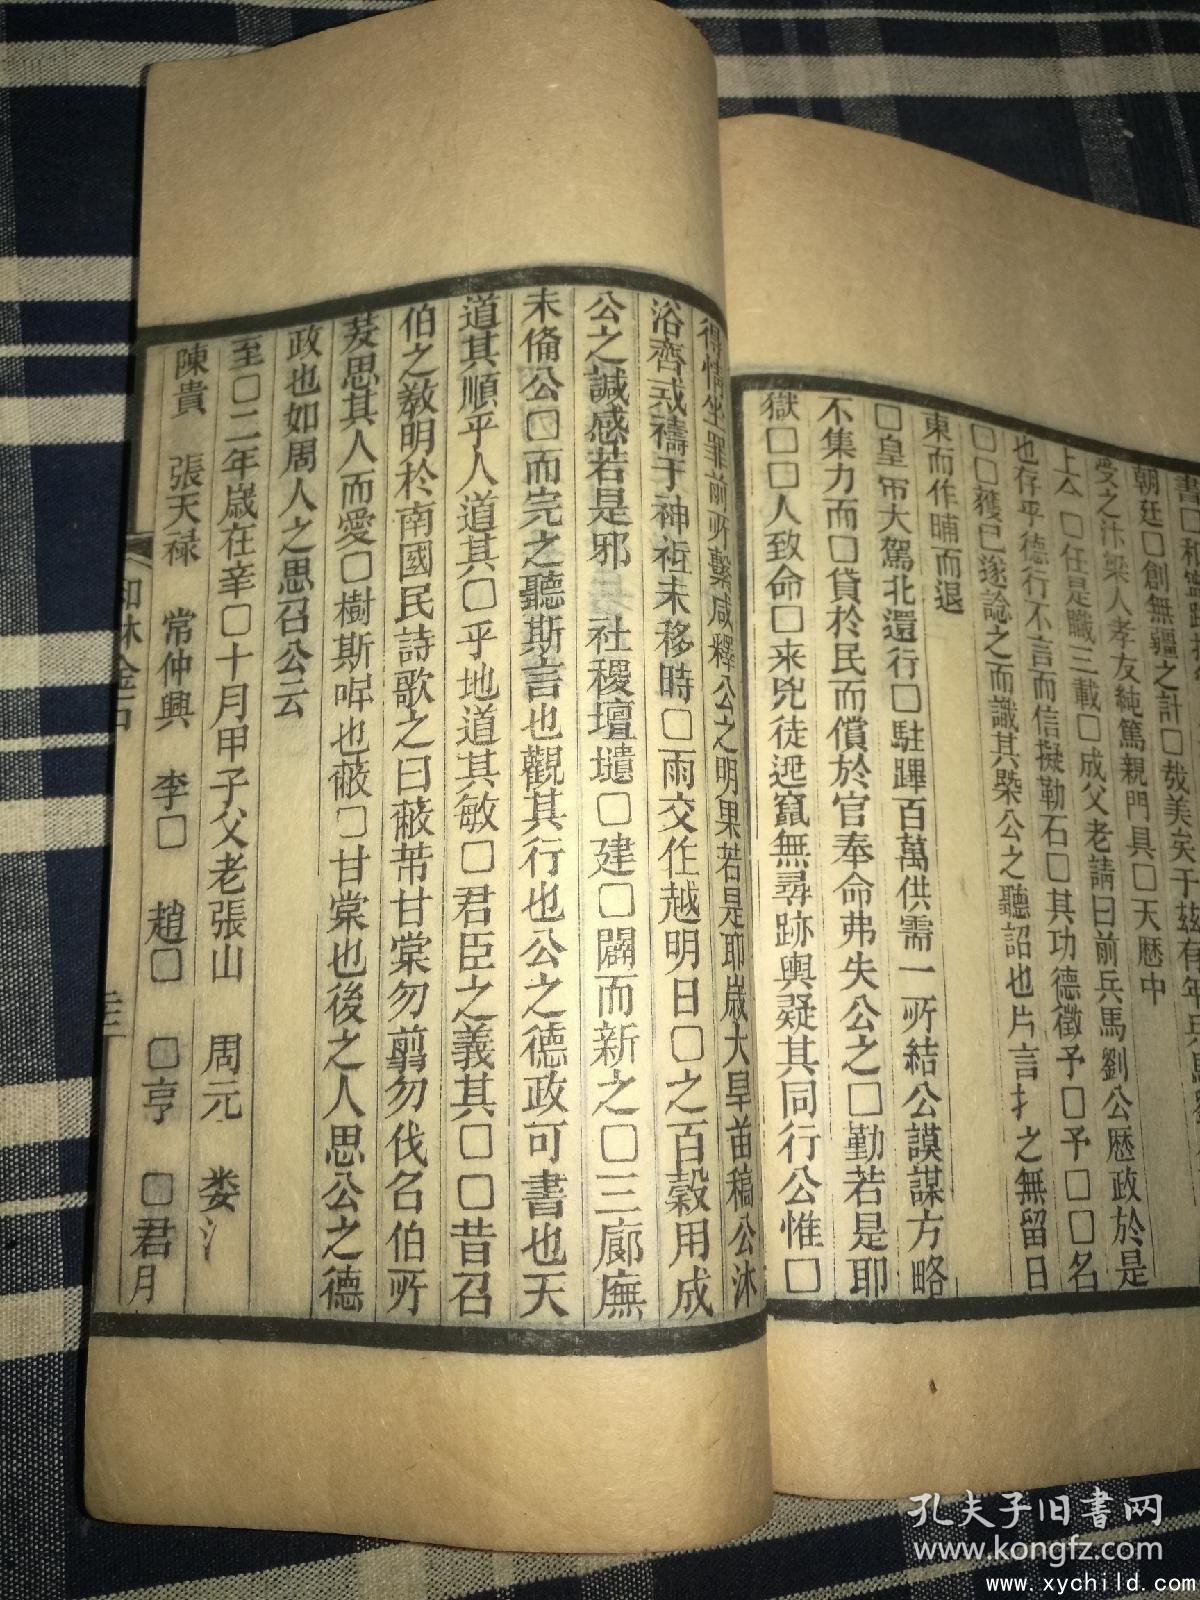 朝廷□創無疆之計□哉美矣于茲有年
愛之汴梁人孝友純篤親門具□天歷中
上亼□任是職三載□成父老請曰前兵馬劉公歷政於是
也存乎德行不言而信擬勒石□其功德徵予□予□□名
□□□獲已遂諗之而識其槩公之聽詔也片言扌之無留日
東而作晡而退
□皇帀大駕北還行□駐蹕百萬供需一所結公謨謀方略
不集力而□貸於民而償於官奉命弗失公之□勤若是耶
獄□□人致命□來兇徒迯竄無尋跡輿疑其同行公惟□
得情坐罪前所繫咸釋公之明果若是耶歲大旱苗稿公沐
浴齊戒禱于神祗未移時□雨交作越明日□之百穀用成
公之諴感若是邪 社稷壇壝□建□闢而新之□三廊廡
未脩公□而完之聽斯言也觀其行也公之德政可書也天
道其順乎人道其□乎地道其敏□君臣之義其□□昔召
伯之教明於南國民詩歌之曰蔽芾甘棠勿翦勿伐名伯所
茇思其人而愛□樹斯㖿也蔽□甘棠也後之人思公之德
政也如周人之思召公云
至□二年歲在辛□十月甲子父老張山 周元 娄氵
陳貴 張天祿 常仲興 李□ 趙□ □亨 □君月
和林金石
孔夫子旧书网
www.kongfz.com
www.xychild.com